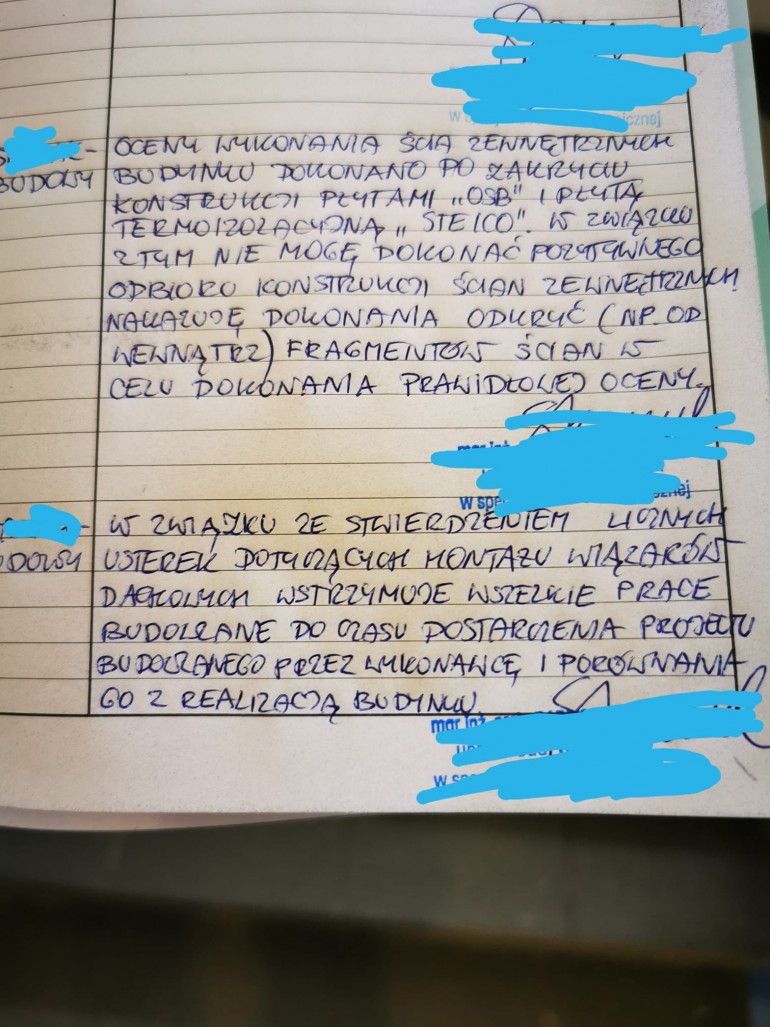 w znej
BUDOWY
OCENY WYKONANIA ŚCIA ZEWNĘTRZNYCH
BUDYNKU DOKONANO PO ZAKRYCIU
KONSTRUKCJI PŁYTAMI „OSB" I PŁYTĄ
TERMOIZOLACYJNĄ „STEICO". W ZWIĄZKU
Z TYM NIE MOGĘ DOKONAĆ POZYTYWNEGO
ODBIORU KONSTRUKCJI ŚCIAN ZEWNĘTRZNYCH
NAKAZUJĘ DOKONANIA ODKRYĆ (NP. OD
WEWNĄTRZ) FRAGMENTÓW ŚCIAN W
CELU DOKONANIA PRAWIDŁOWEJ OCENY.
w spe nej
UDOWY
W ZWIĄZKU ZE STWIERDZENIEM LICZNYCH
USTEREK DOTYCZĄCYCH MONTAŻU WIĄZARÓW
DACHOWYCH WSTRZYMUJE WSZELKIE PRACE
BUDOWLANE DO CZASU DOSTARCZENIA PROJEKTU
BUDOWLANEGO PRZEZ WYKONAWCĘ I PORÓWNANIA
GO Z REALIZACJĄ BUDYNKU.
mgr inż
w s